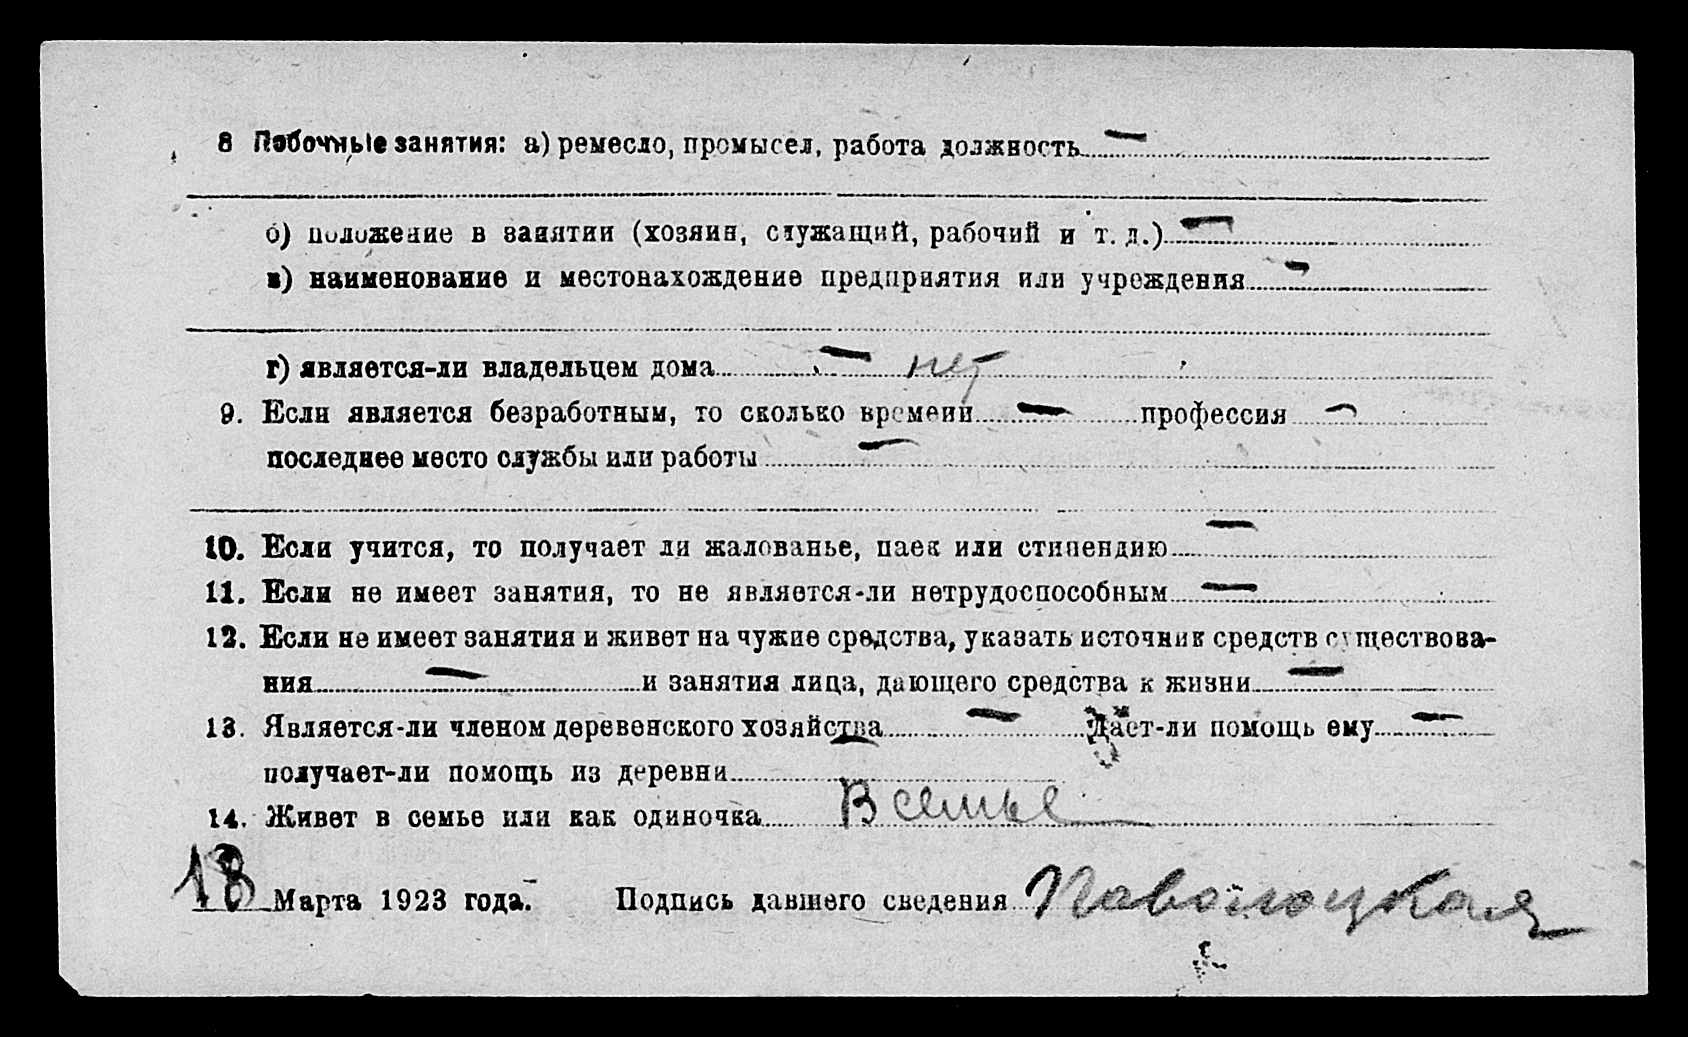 8 Побочные занятия: а) ремесло, промысел, работа должность —
б) положение в занятии (хозяин, служащий, рабочий и т. д.) —
в) наименование и местонахождение предприятия или учреждения —
г) является-ли владельцем дома — нет
9. Если является безработным, то сколько времени — профессия —
последнее место службы или работы —
10. Если учится, то получает ли жалованье, паек или стипендию —
11. Если не имеет занятия, то не является-ли нетрудоспособным —
12. Если не имеет занятия и живет на чужие средства, указать источник средств существова-
ния — и занятия лица, дающего средства к жизни —
13. Является-ли членом деревенского хозяйства — Дает-ли помощь ему —
получает-ли помощь из деревни —
14. Живет в семье или как одиночка В семье
18 Марта 1923 года. Подпись давшего сведения Поволоцкая